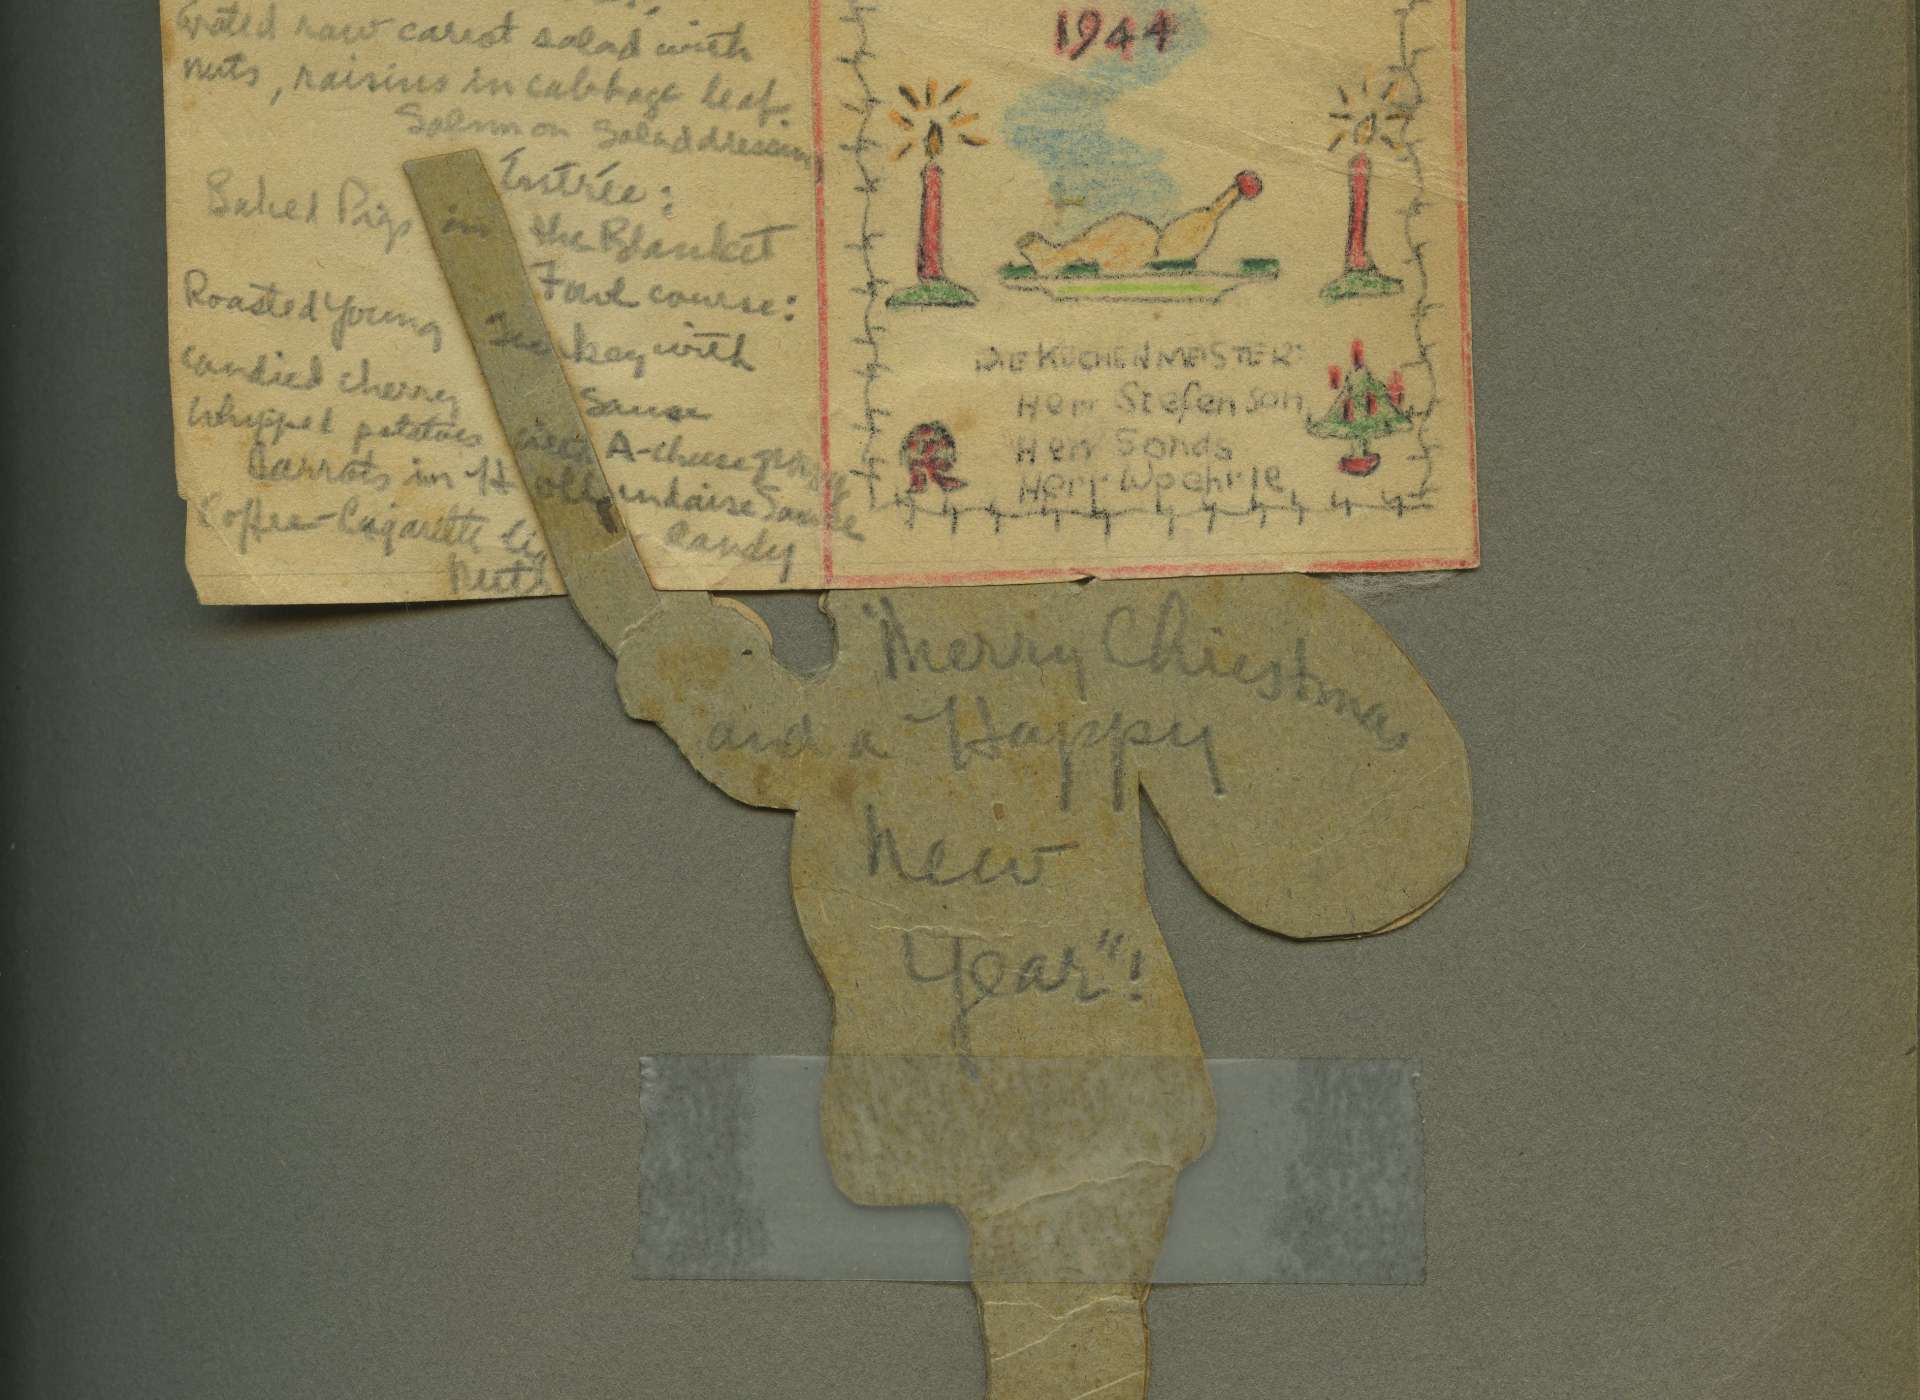 Grated raw carrot salad with
nuts, raisins in cabbage leaf.
Salmon Salad dressing
Entrée:
Baked Pigs in the Blanket
Fowl course:
Roasted Young Turkey with
candied cherry Sause
Whipped potatoes with A-cheese
Carrots in Hollundaise Sauce
Koffee-Cigarette Candy
Nuts
1944
DIE KÜCHENMEISTER:
Herr Stefenson
Herr Sonds
Herr Woehrle
"Merry Chirstmas
and a Happy
New
Year"!